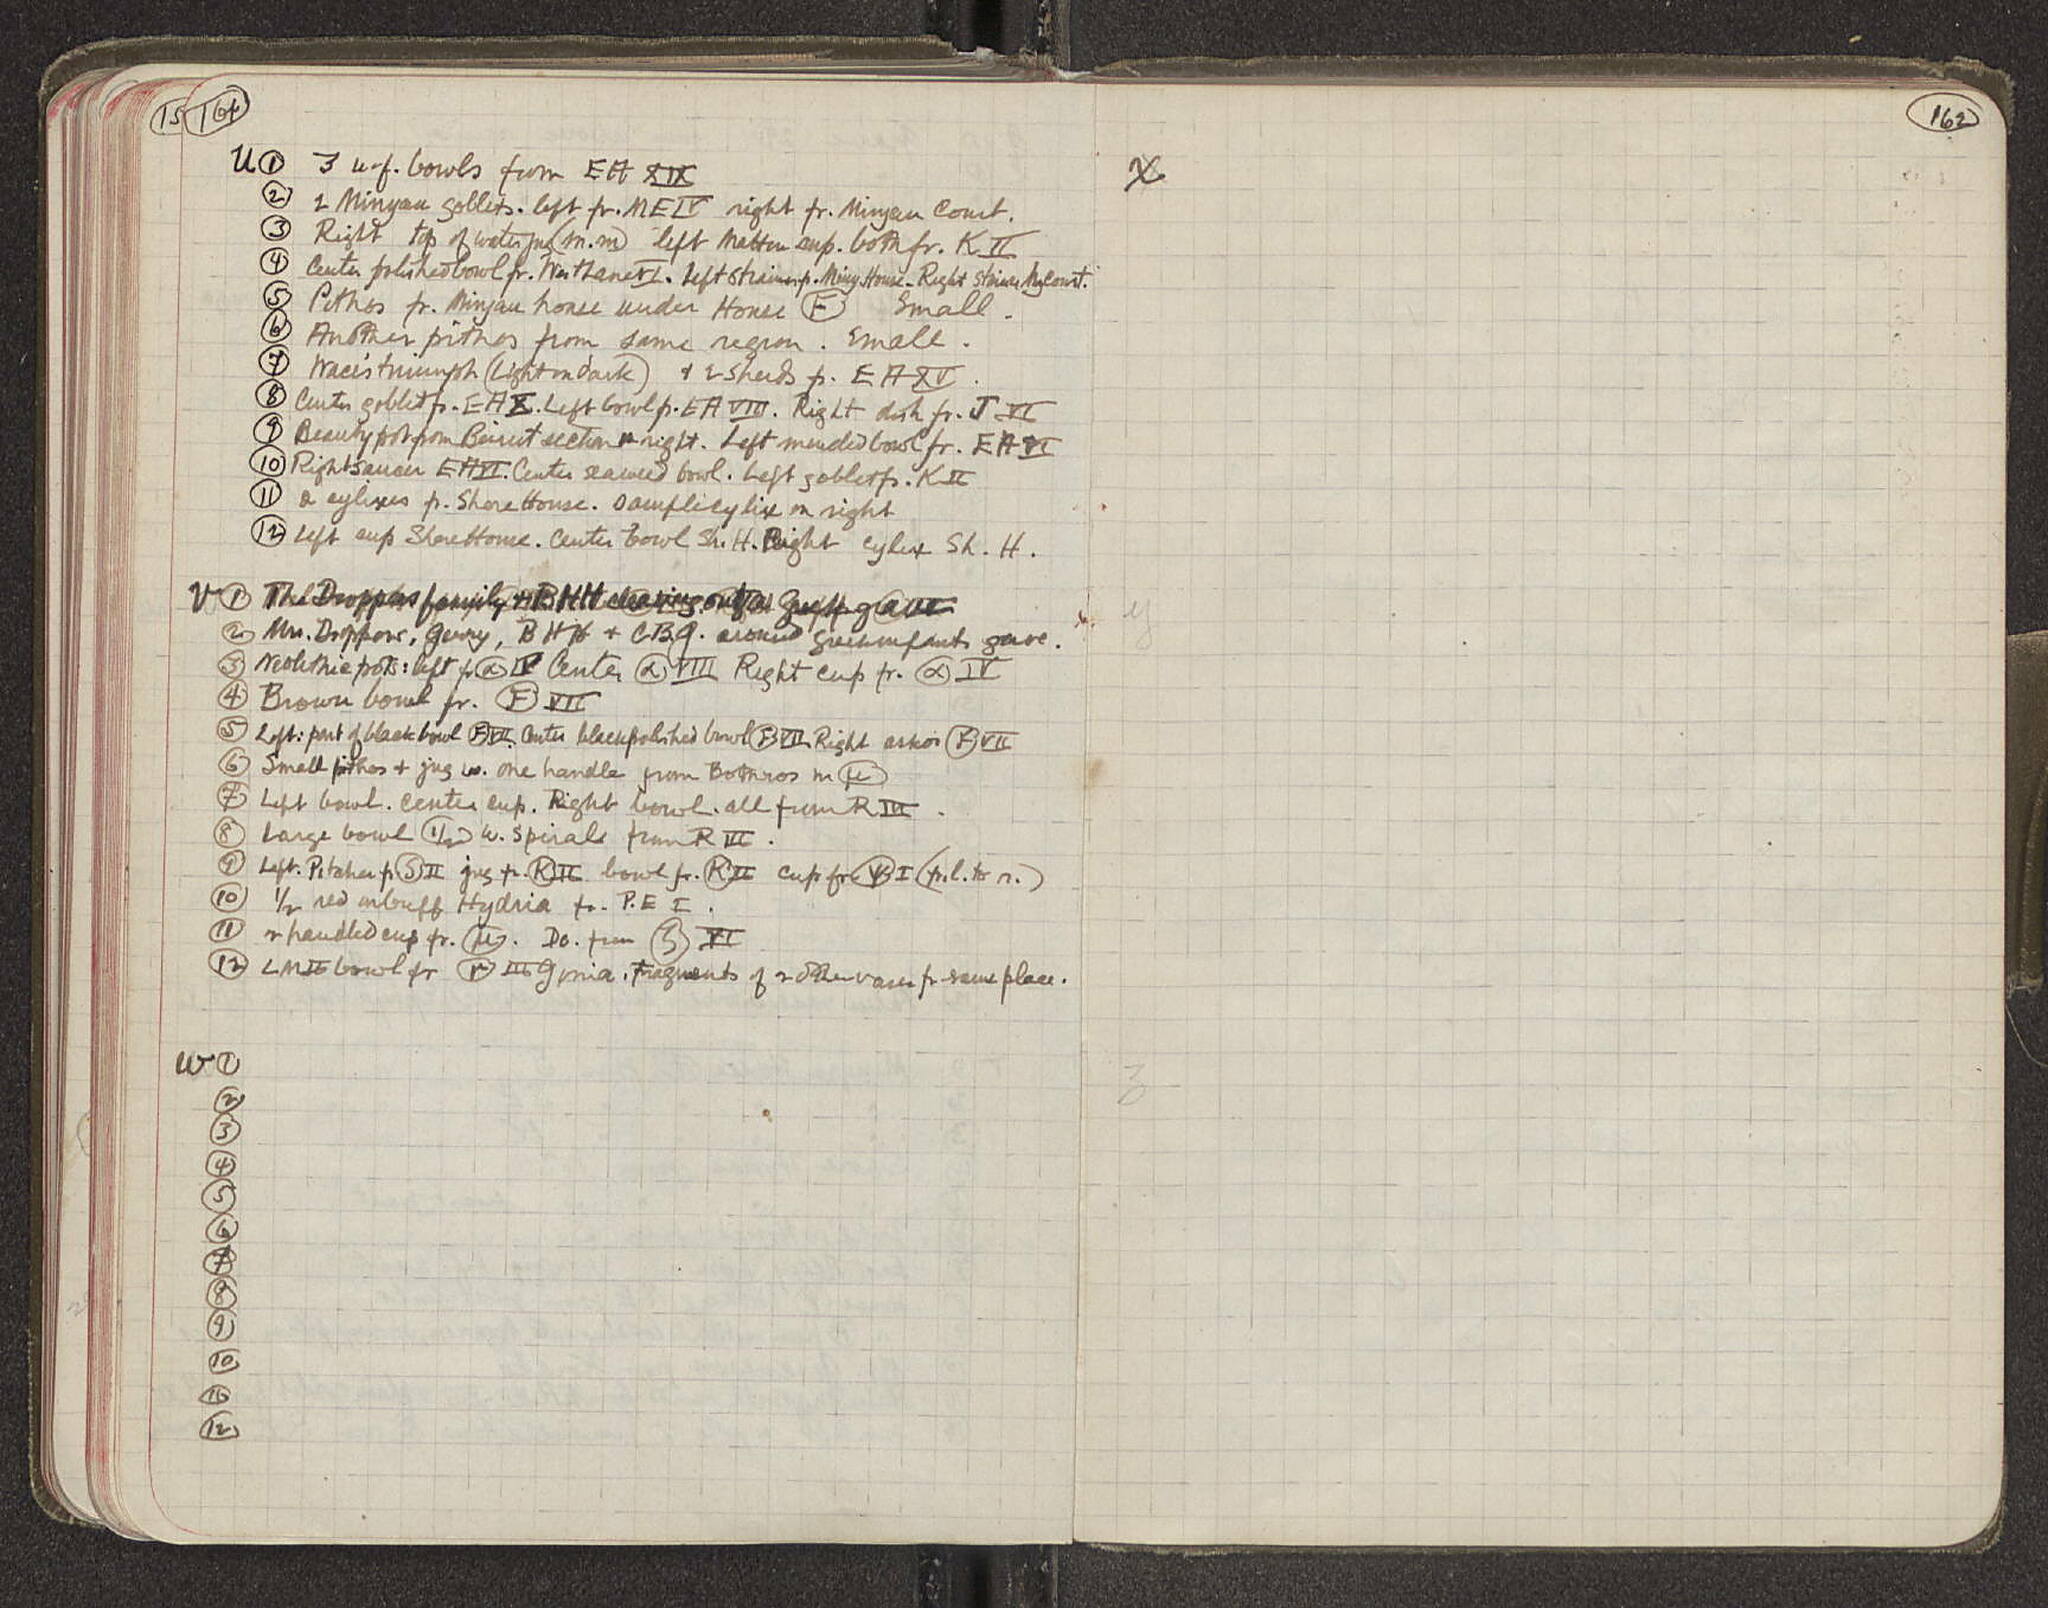 15
164
U ① 3 u-f. bowls from EA XIX
② 2 Minyan goblets. left fr. NE IV right fr. Minyan Court.
③ Right top of water jug (m.m) left Matton cup. both fr. K II
④ Center polished bowl fr. I. Left strainer fr. Miny. House - Right Strainer My Court.
⑤ Pithos fr. Minyan house under House (F) Small.
⑥ Another pithos from same region. Small.
⑦ Wace's triumph (Light on dark) & 2 sherds fr. EA XV.
⑧ Center goblet fr. EA X. Left bowl fr. EA VIII. Right dish fr. J VI
⑨ Beauty pot from section right. Left mended bowl fr. EA VI
⑩ Right saucer EA VI. Center seaweed bowl. Left goblet fr. K II
⑪ 2 cylixes fr. Shore House. cylix on right
⑫ Left cup Shore House. Center bowl Sh. H. Right cylix Sh. H.
V ① The Droppers family + BHH clearing out a grave
② Mrs. Droppers, Gerry, BHH + CBG. around infants grave.
③ Neolithic pots: left fr. (α) IV Center (α) VIII Right cup fr. (α) IV
④ Brown bowl fr. (F) VII
⑤ Left: part of black bowl (F) VII. Center black polished bowl (F) VII. Right askos (F) VII
⑥ Small pithos + jug w. one handle from Bothros in (μ)
⑦ Left bowl. Center cup. Right bowl. all from R III.
⑧ Large bowl (1/2) w. spirals from R III.
⑨ Left. Pitcher fr. (S) II jug fr. (K) III bowl fr. (K) II cup fr. (ψ) I (fr. l. to r.)
⑩ 1/2 red on buff Hydria fr. P.E I.
⑪ 2 handled cup fr. (μ). Do. from (ζ) VI
⑫ LM II bowl fr III Gonia. Fragments of 2 other vases fr same place.
W ①
②
③
④
⑤
⑥
⑦
⑧
⑨
⑩
⑯
⑫
162
X
y
z